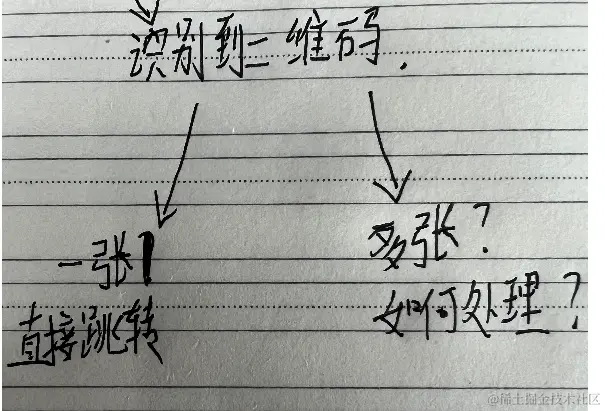 识别到二维码.
一张1
直接跳转
多张?
如何处理?
@稀土掘金技术社区